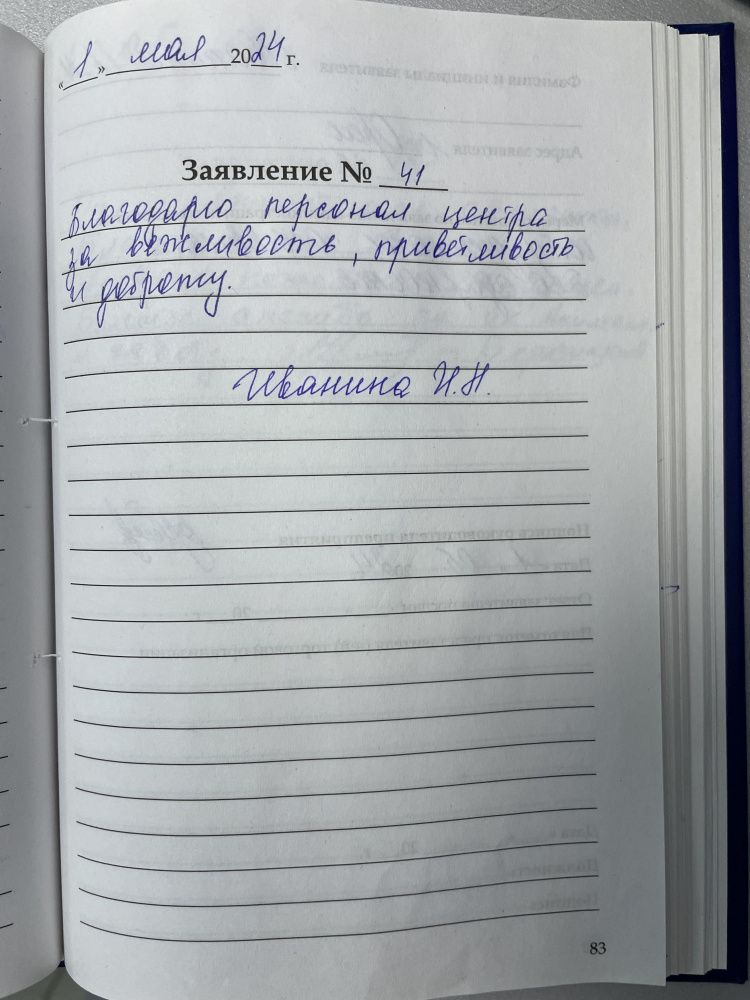 «1» мая 2024 г.
Заявление № 41
Благодарю персонал центра
за вежливость, приветливость
и доброту.
Иванина И.Н.
83